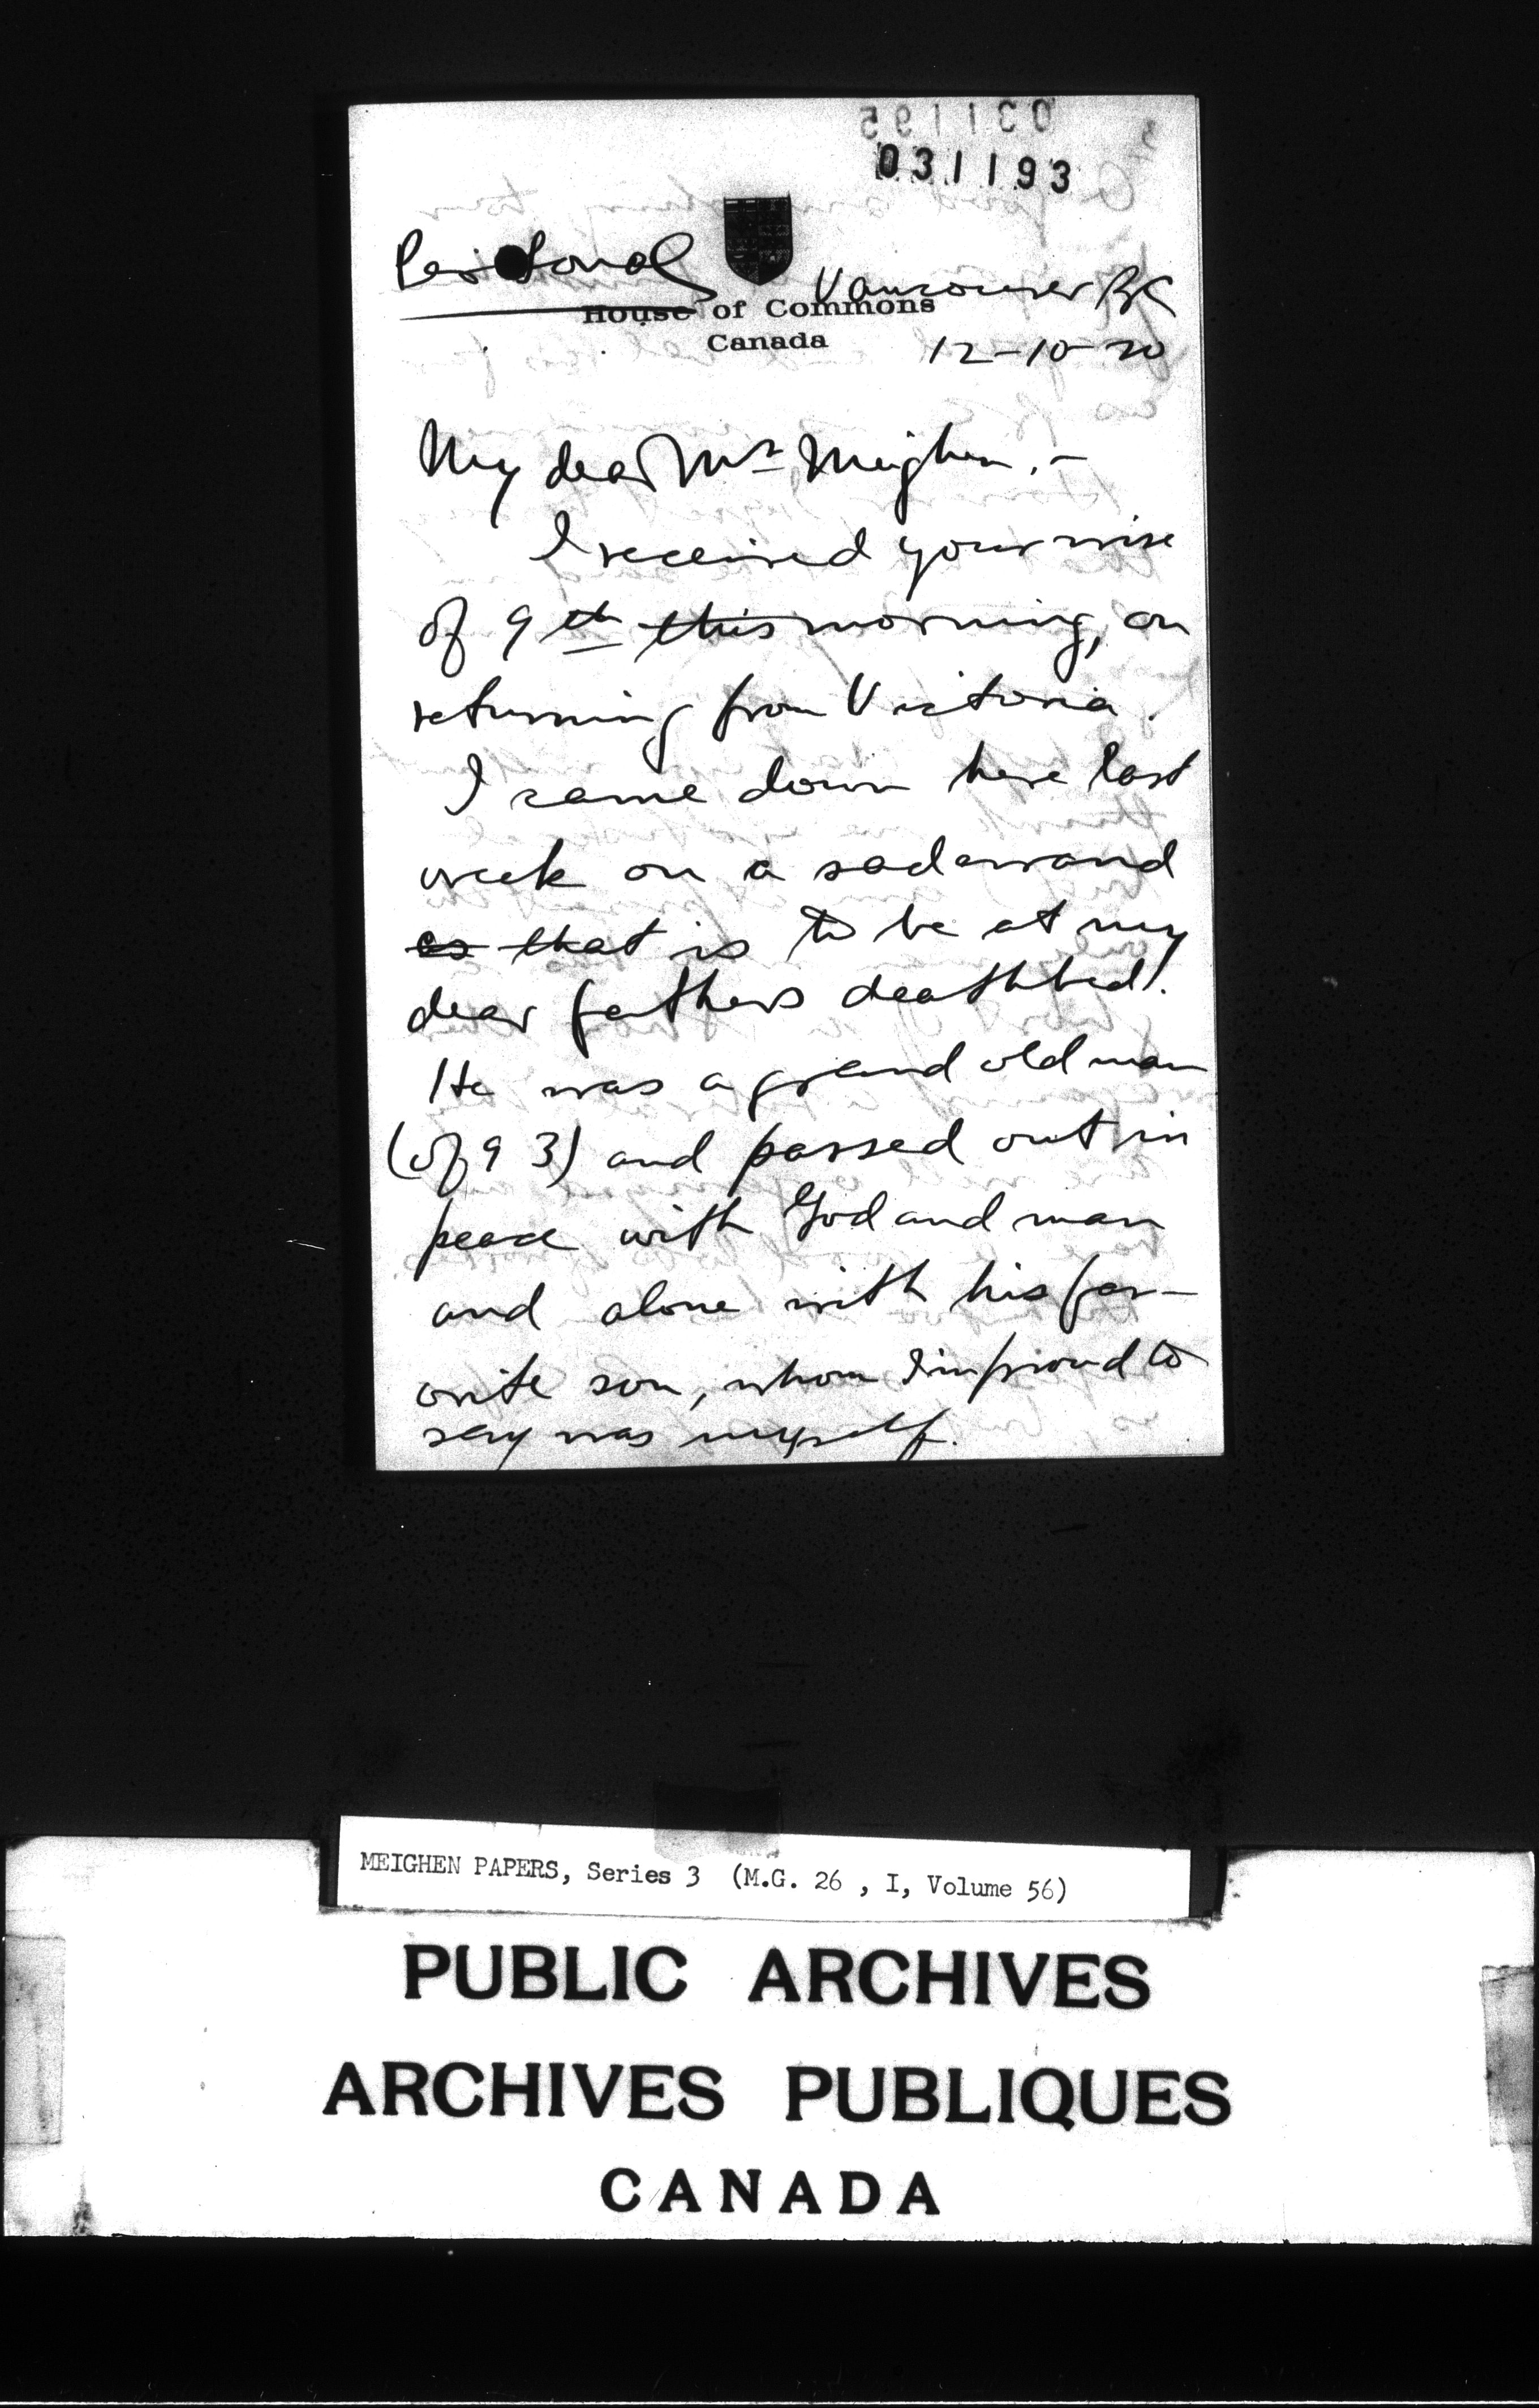 031195
031193
Personal
Vancouver BC
House of Commons
Canada
12-10-20
My dear Mr Meighen. -
I received your wire
of 9th this morning, on
returning from Victoria.
I came down here last
week on a sad errand
as that is to be at my
dear fathers deathbed.
He was a grand old man
(of 93) and passed out in
peace with God and man
and alone with his fav-
orite son, whom I'm proud to
say was myself.
MEIGHEN PAPERS, Series 3 (M.G. 26 , I, Volume 56)
PUBLIC ARCHIVES
ARCHIVES PUBLIQUES
CANADA